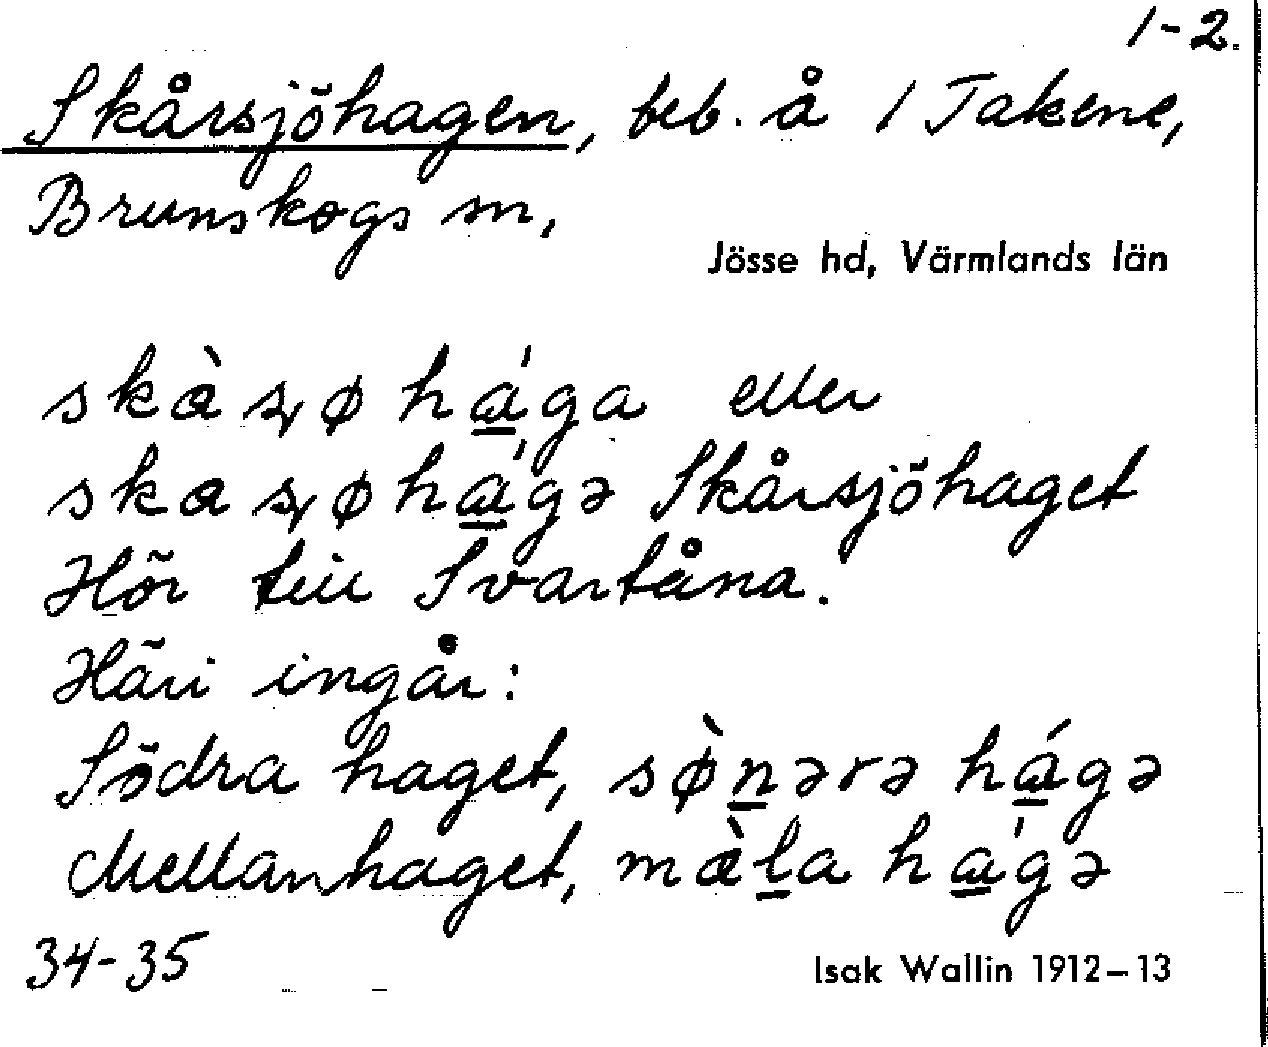 1-2.
Skårsjöhagen, beb. å 1 Takene,
Brunskogs sn,
Jösse hd, Värmlands län
eller
Skårsjöhaget
Hör till Svartåna.
Häri ingår:
Södra haget, sø̀nərə hágə
Mellanhaget, hágə
34-35
Isak Wallin 1912-13